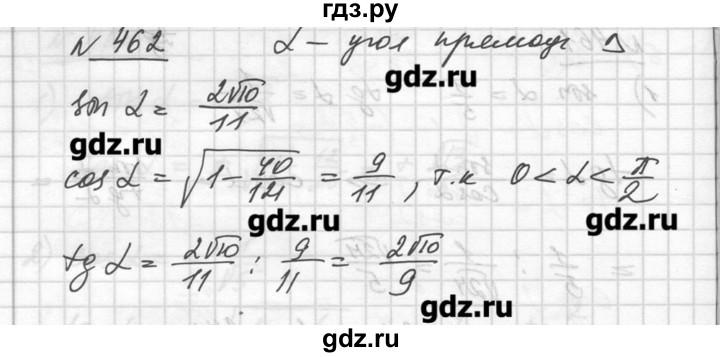 гдз.ру
№ 462 α – угол прямоуг Δ
gdz.ru
sin α = 2√10/11
gdz.ru
cos α = √(1 − 40/121) = 9/11, т.к 0 < α < π/2
gdz.ru
tg α = 2√10/11 : 9/11 = 2√10/9
gdz.ru
gdz.ru